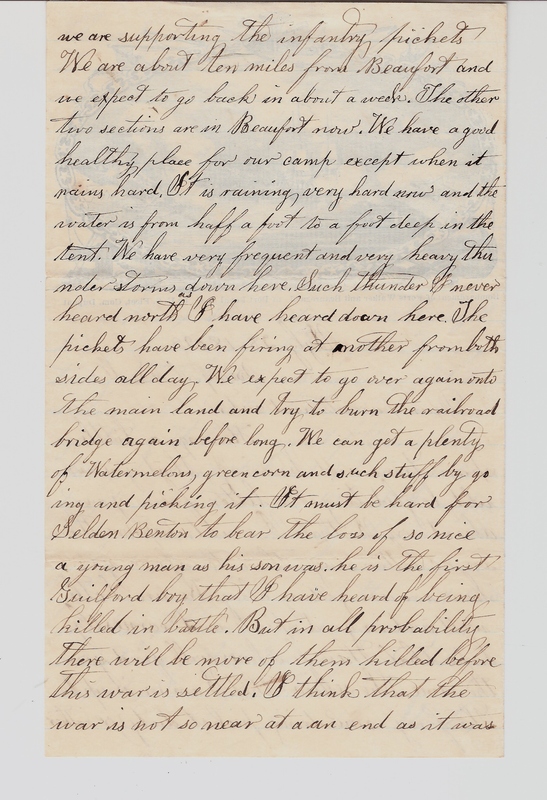 we are supporting the infantry pickets
We are about ten miles from Beaufort and
we expect to go back in about a week. The other
two sections are in Beaufort now. We have a good
healthy place for our camp except when it
rains hard. It is raining very hard now and the
water is from haff a foot to a foot deep in the
tent. We have very frequent and very heavy thu
nder storms down here. Such thunder I never
heard north as I have heard down here. The
pickets have been firing at another from both
sides all day. We expect to go over again onto
the main land and try to burn the railroad
bridge again before long. We can get a plenty
of Watermelons, green corn and such stuff by go
ing and picking it. It must be hard for
Selden Benton to bear the loss of so nice
a young man as his son was. he is the first
Guilford boy that I have heard of being
killed in battle. But in all probability
there will be more of them killed before
this war is settled. I think that the
war is not so near at a an end as it was